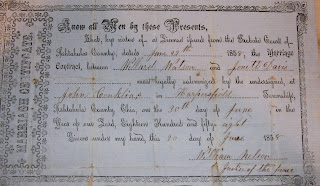 MARRIAGE CERTIFICATE
Know all Men by these Presents,
That, by virtue of a License issued from the Probate Court of
Ashtabula County, dated June 18th 1858, the Marriage
Contract, between Willard Watson and Jane V. Davis
was legally solemnized by the undersigned, at
John Conklins in Harpersfield Township,
Ashtabula County, Ohio, on the 20th day of June in the
Year of our Lord, Eighteen Hundred and fifty eight
Given under my hand, this 20 day of June 1858
William Nelson
Justice of the Peace